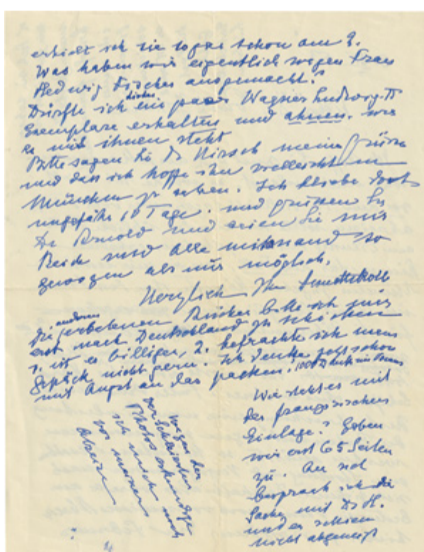 erhielt ich sie sogar schon am 2.
Was haben wir eigentlich wegen Frau
Hedwig Fischer ausgemacht?
Dürfte ich ein paar Wagner Ludwig II
Exemplare erhalten und ahnen, wie
es mit ihnen steht
Bitte sagen Sie Dr Hirsch meine Grüsse
und dass ich hoffe ihn vielleicht in
München zu sehen. Ich bleibe dort
ungefähr 10 Tage. und grüssen Sie
Dr Arnold und seien Sie mir
Beide und alle miteinand so
gewogen als nur möglich.
Herzlich Ihre Annette Kolb
Die erbetenen anderen Bücher bitte ich mir
erst nach Deutschland zu schicken
1. ist es billiger, 2. befrachte ich mein
Gepäck nicht gern. Ich denke jetzt schon
mit Angst an das packen.
Wie steht es mit
der französischen
Einlage? Gaben
wir erst 65 Seiten
zu. An sich
besprach ich die
Sache mit Dr H.
und er schien
nicht abgeneigt
wegen der
Photos
ich